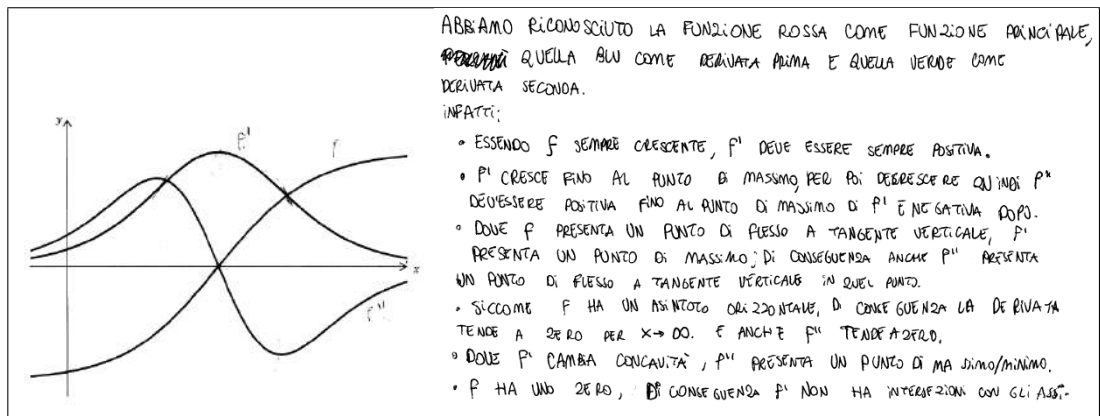 ABBIAMO RICONOSCIUTO LA FUNZIONE ROSSA COME FUNZIONE PRINCIPALE,
QUELLA BLU COME DERIVATA PRIMA E QUELLA VERDE COME
DERIVATA SECONDA.
INFATTI:
• ESSENDO f SEMPRE CRESCENTE, f' DEVE ESSERE SEMPRE POSITIVA.
• f' CRESCE FINO AL PUNTO DI MASSIMO, PER POI DECRESCERE QUINDI f"
DEV'ESSERE POSITIVA FINO AL PUNTO DI MASSIMO DI f' E NEGATIVA DOPO.
• DOVE f PRESENTA UN PUNTO DI FLESSO A TANGENTE VERTICALE, f'
PRESENTA UN PUNTO DI MASSIMO; DI CONSEGUENZA ANCHE f" PRESENTA
UN PUNTO DI FLESSO A TANGENTE VERTICALE IN QUEL PUNTO.
• SICCOME f HA UN ASINTOTO ORIZZONTALE, DI CONSEGUENZA LA DERIVATA
TENDE A ZERO PER X→∞. E ANCHE f" TENDE A ZERO.
• DOVE f' CAMBIA CONCAVITÀ, f" PRESENTA UN PUNTO DI MASSIMO/MINIMO.
• f HA UNO ZERO, DI CONSEGUENZA f' NON HA INTERSEZIONI CON GLI ASSI.
y
f'
f
x
f"